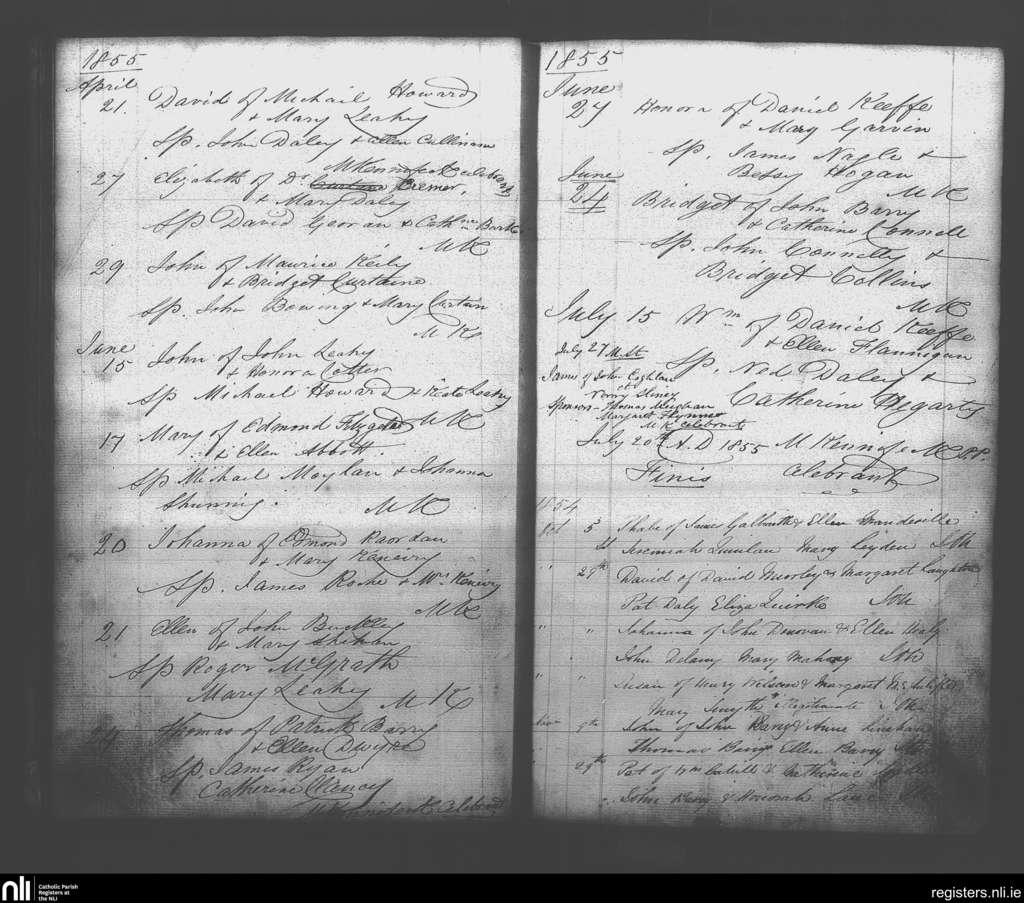 1855
April
21. David of Michail Howard
& Mary Leahy
Sp. John Daley & Ellen Cullinane
MKennefeck celebrant
27 Elizabeth of Ds Cremer,
& Mary Daley
Sp David Georan & Cathne Burke
MK
29 John of Maurice Keily
& Bridget Curtaine
Sp. John Bowing & Mary Curtan
MK
June
15 John of John Leahy
& Honora Cotter
Sp Michail Howard & Kate Leahy
MK
17 Mary of Edmond Fitzgerald
& Ellen Abbott.
Sp Michail Moylan & Johanna
Shunning.
MK
20 Johanna of Edmond Raordan
& Mary Keneivy
Sp. James Roche & Mrs Keneivy
MK
21 Ellen of John Buckley
& Mary
Sp Roger McGrath
Mary Leahy MK
24 Thomas of Patrick Barry
& Ellen Dwyer
Sp. James Ryan
Catherine Clancy
MKennefeck Celebrant
1855
June
27 Honora of Daniel Keeffe
& Mary Garvin
Sp. James Nagle &
Betsy Hogan
MK
June
24 Bridget of John Barry
& Catherine Connell
Sp. John Connelly &
Bridget Collins
MK
July 15 Wm of Daniel Keeffe
& Ellen Flannigan
Sp. Ned. Daley &
Catherine Hegarty
July 27 M.St
James of John Coghlan
&
Norry
Sponsors Thomas Meighan
Margaret
MK Celebrant
July 20th A.D 1855 M Kennefeck P.P.
Finis Celebrant
1854
Oct 5 of James Galbraith & Ellen Mandeville
Jeremiah Quinlan Mary Leyden
" 29th David of David Morley & Margaret Laughton
Pat Daly Eliza Quirke
" " Johanna of John Donovan & Ellen Healy
John Delany Mary Mahony
" " Susan of Henry Wilson & Margaret McAuliffe
Mary Smyth Illegitimate
Nov 9th John of John Barry & Anne Linehan
Thomas Barry Ellen Barry
" 29th Pat of Wm Cahill & Catherine
John Barry & Honorah Lane
nli
Catholic Parish
Registers at
the NLI
registers.nli.ie